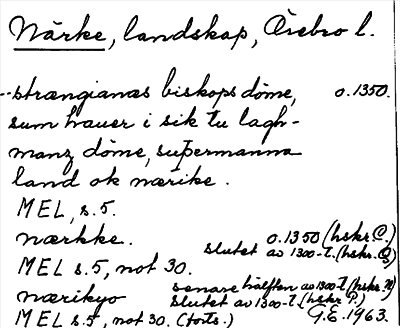 Närke, landskap, Örebro l.
--strængianæs biskops döme, o.1350.
sum hauer i sik tu lagh-
manz döme, suþermanna
land ok nærike.
MEL, s.5.
nærkke. o.1350 (hskr. C.)
slutet av 1300-t. (hskr. Q)
MEL s.5, not 30.
nærikyo senare hälften av 1300-t (hskr.
slutet av 1300-t. (hskr P.)
MEL s.5, not 30. (forts.) G.E. 1963.